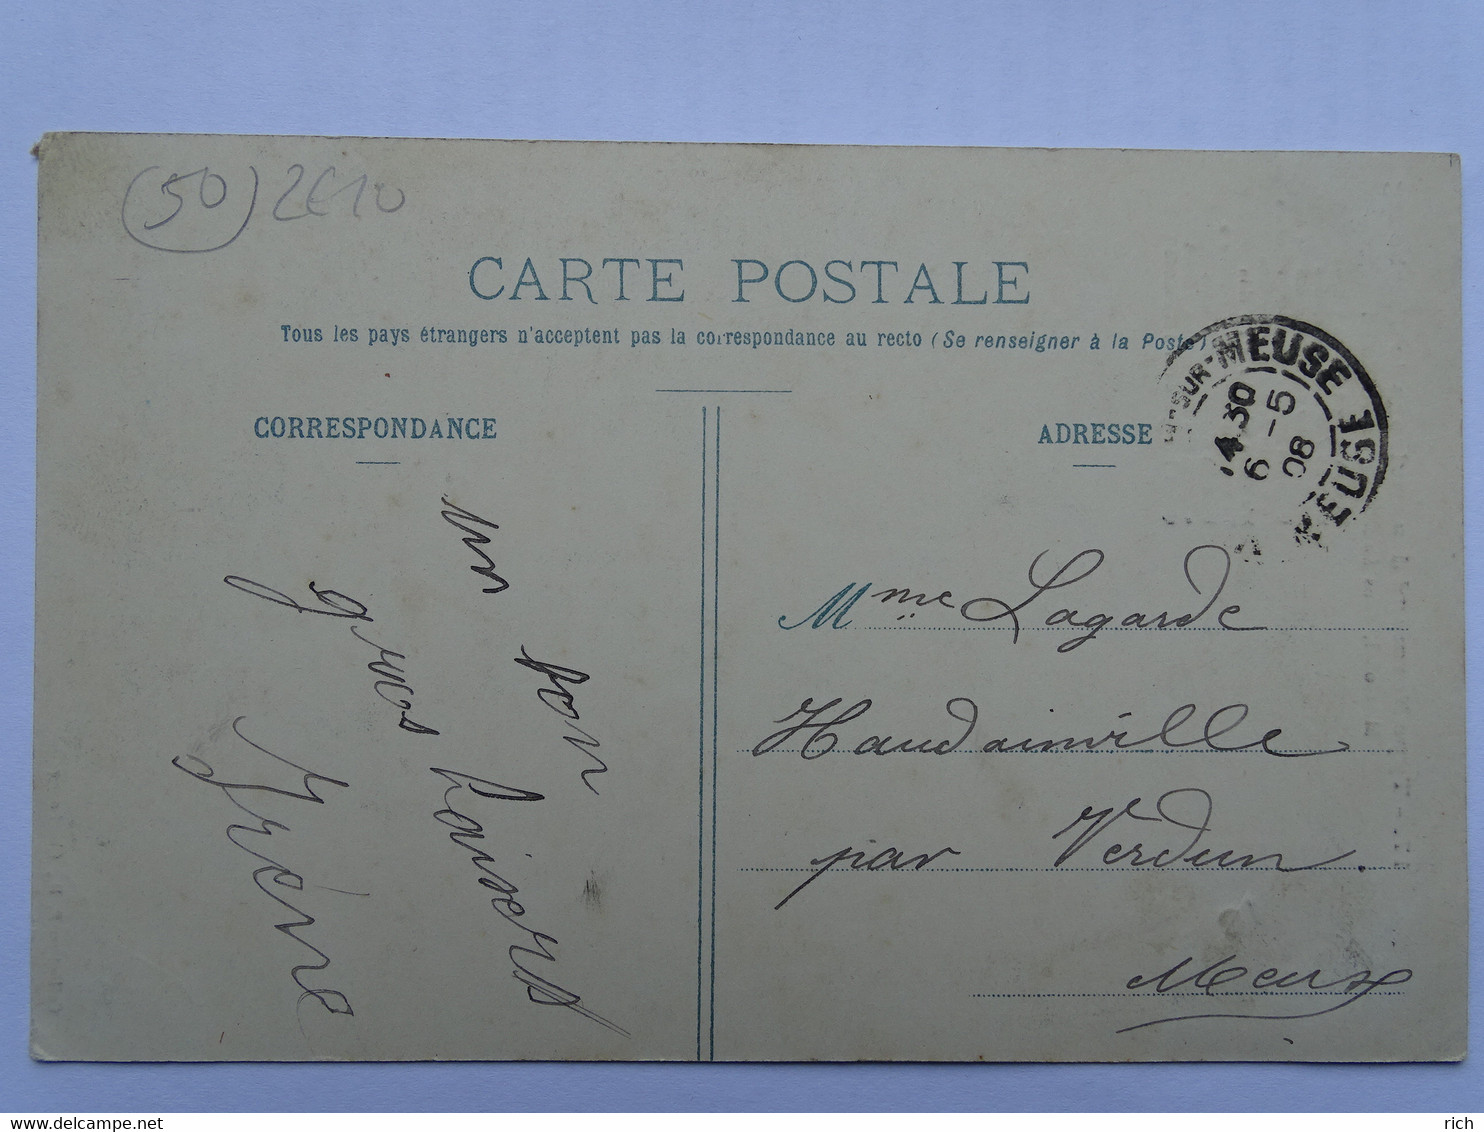 (50) 2€10
CARTE POSTALE
Tous les pays étrangers n'acceptent pas la correspondance au recto (Se renseigner à la Poste)
CORRESPONDANCE
ADRESSE
SUR-MEUSE
30
6 -5
08
MEUSE
un bon
gros baisers
Irène
Mme Lagarde
Haudainville
par Verdun.
Meuse
delcampe.net
rich